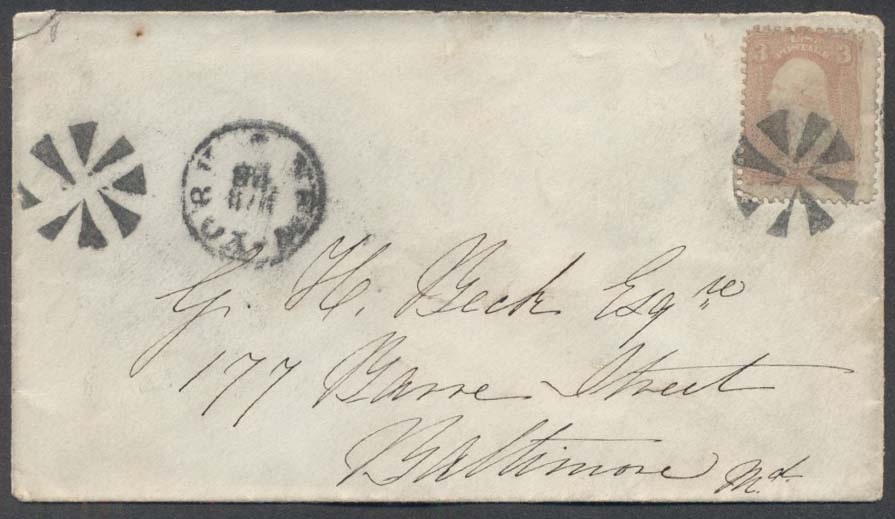 3 POSTAGE 3
NEW YORK
G. H. Beck Esqre
177 Barre Street
Baltimore Md.